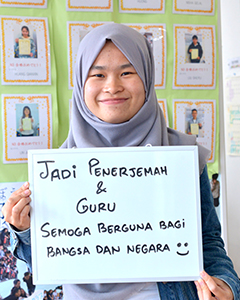 JADI PENERJEMAH
&
GURU
SEMOGA BERGUNA BAGI
BANGSA DAN NEGARA